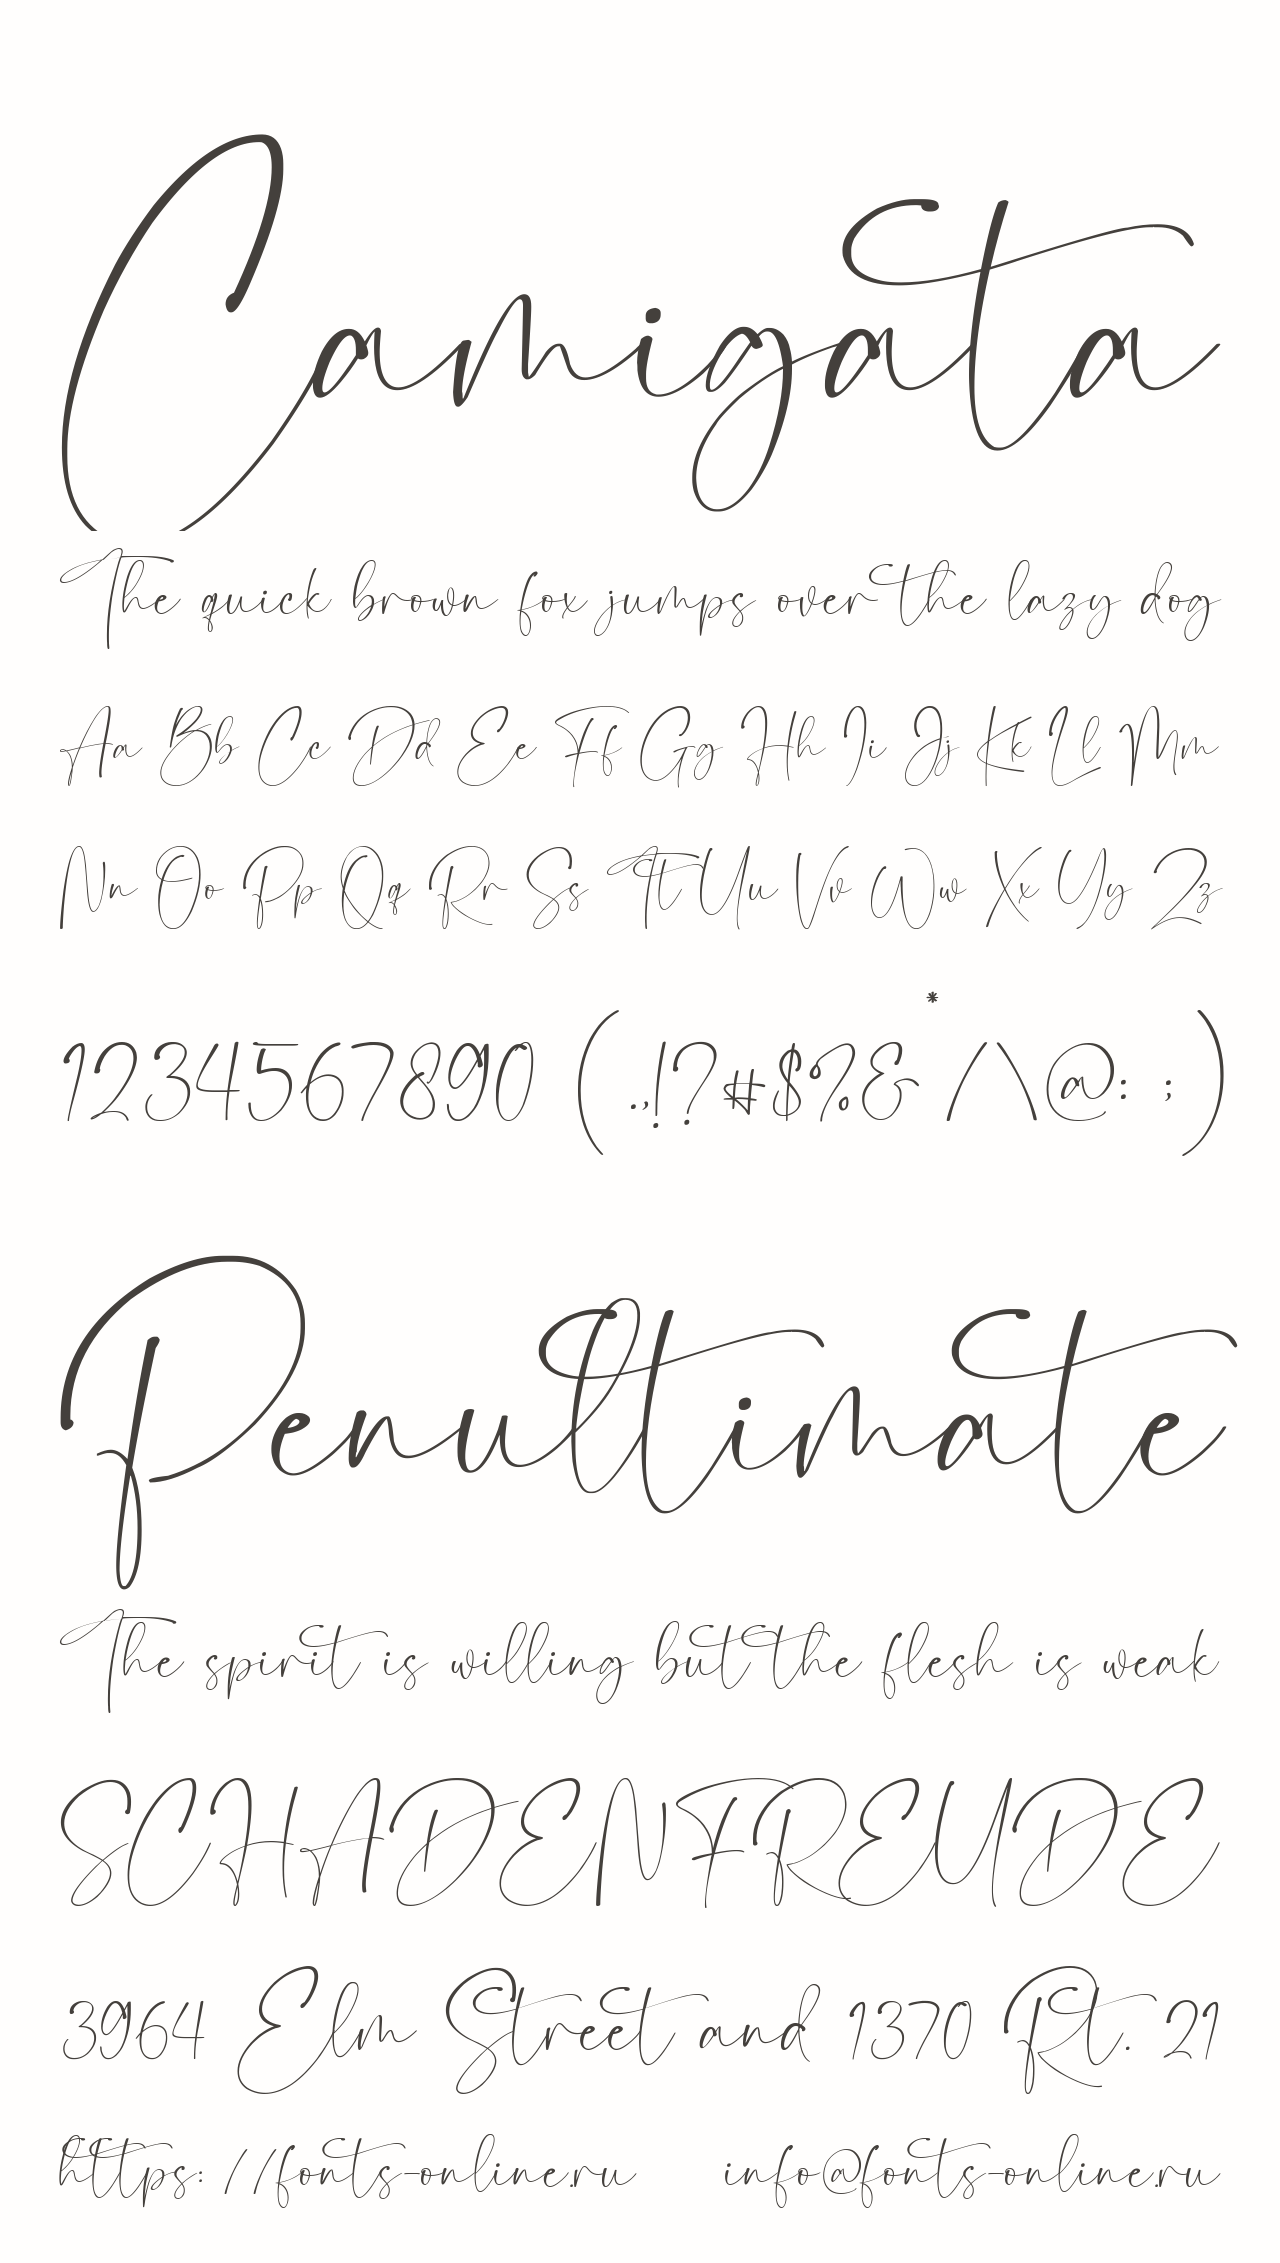 Camigata
The quick brown fox jumps over the lazy dog
Aa Bb Cc Dd Ee Ff Gg Hh Ii Jj Kk Ll Mm
Nn Oo Pp Qq Rr Ss Tt Uu Vv Ww Xx Yy Zz
1234567890 (.,!?#$%&*/\@: ;)
Penultimate
The spirit is willing but the flesh is weak
SCHADENFREUDE
3964 Elm Street and 1370 Rt. 21
https://fonts-online.ru info@fonts-online.ru